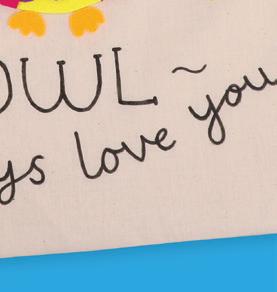 OWL ~
ys love you